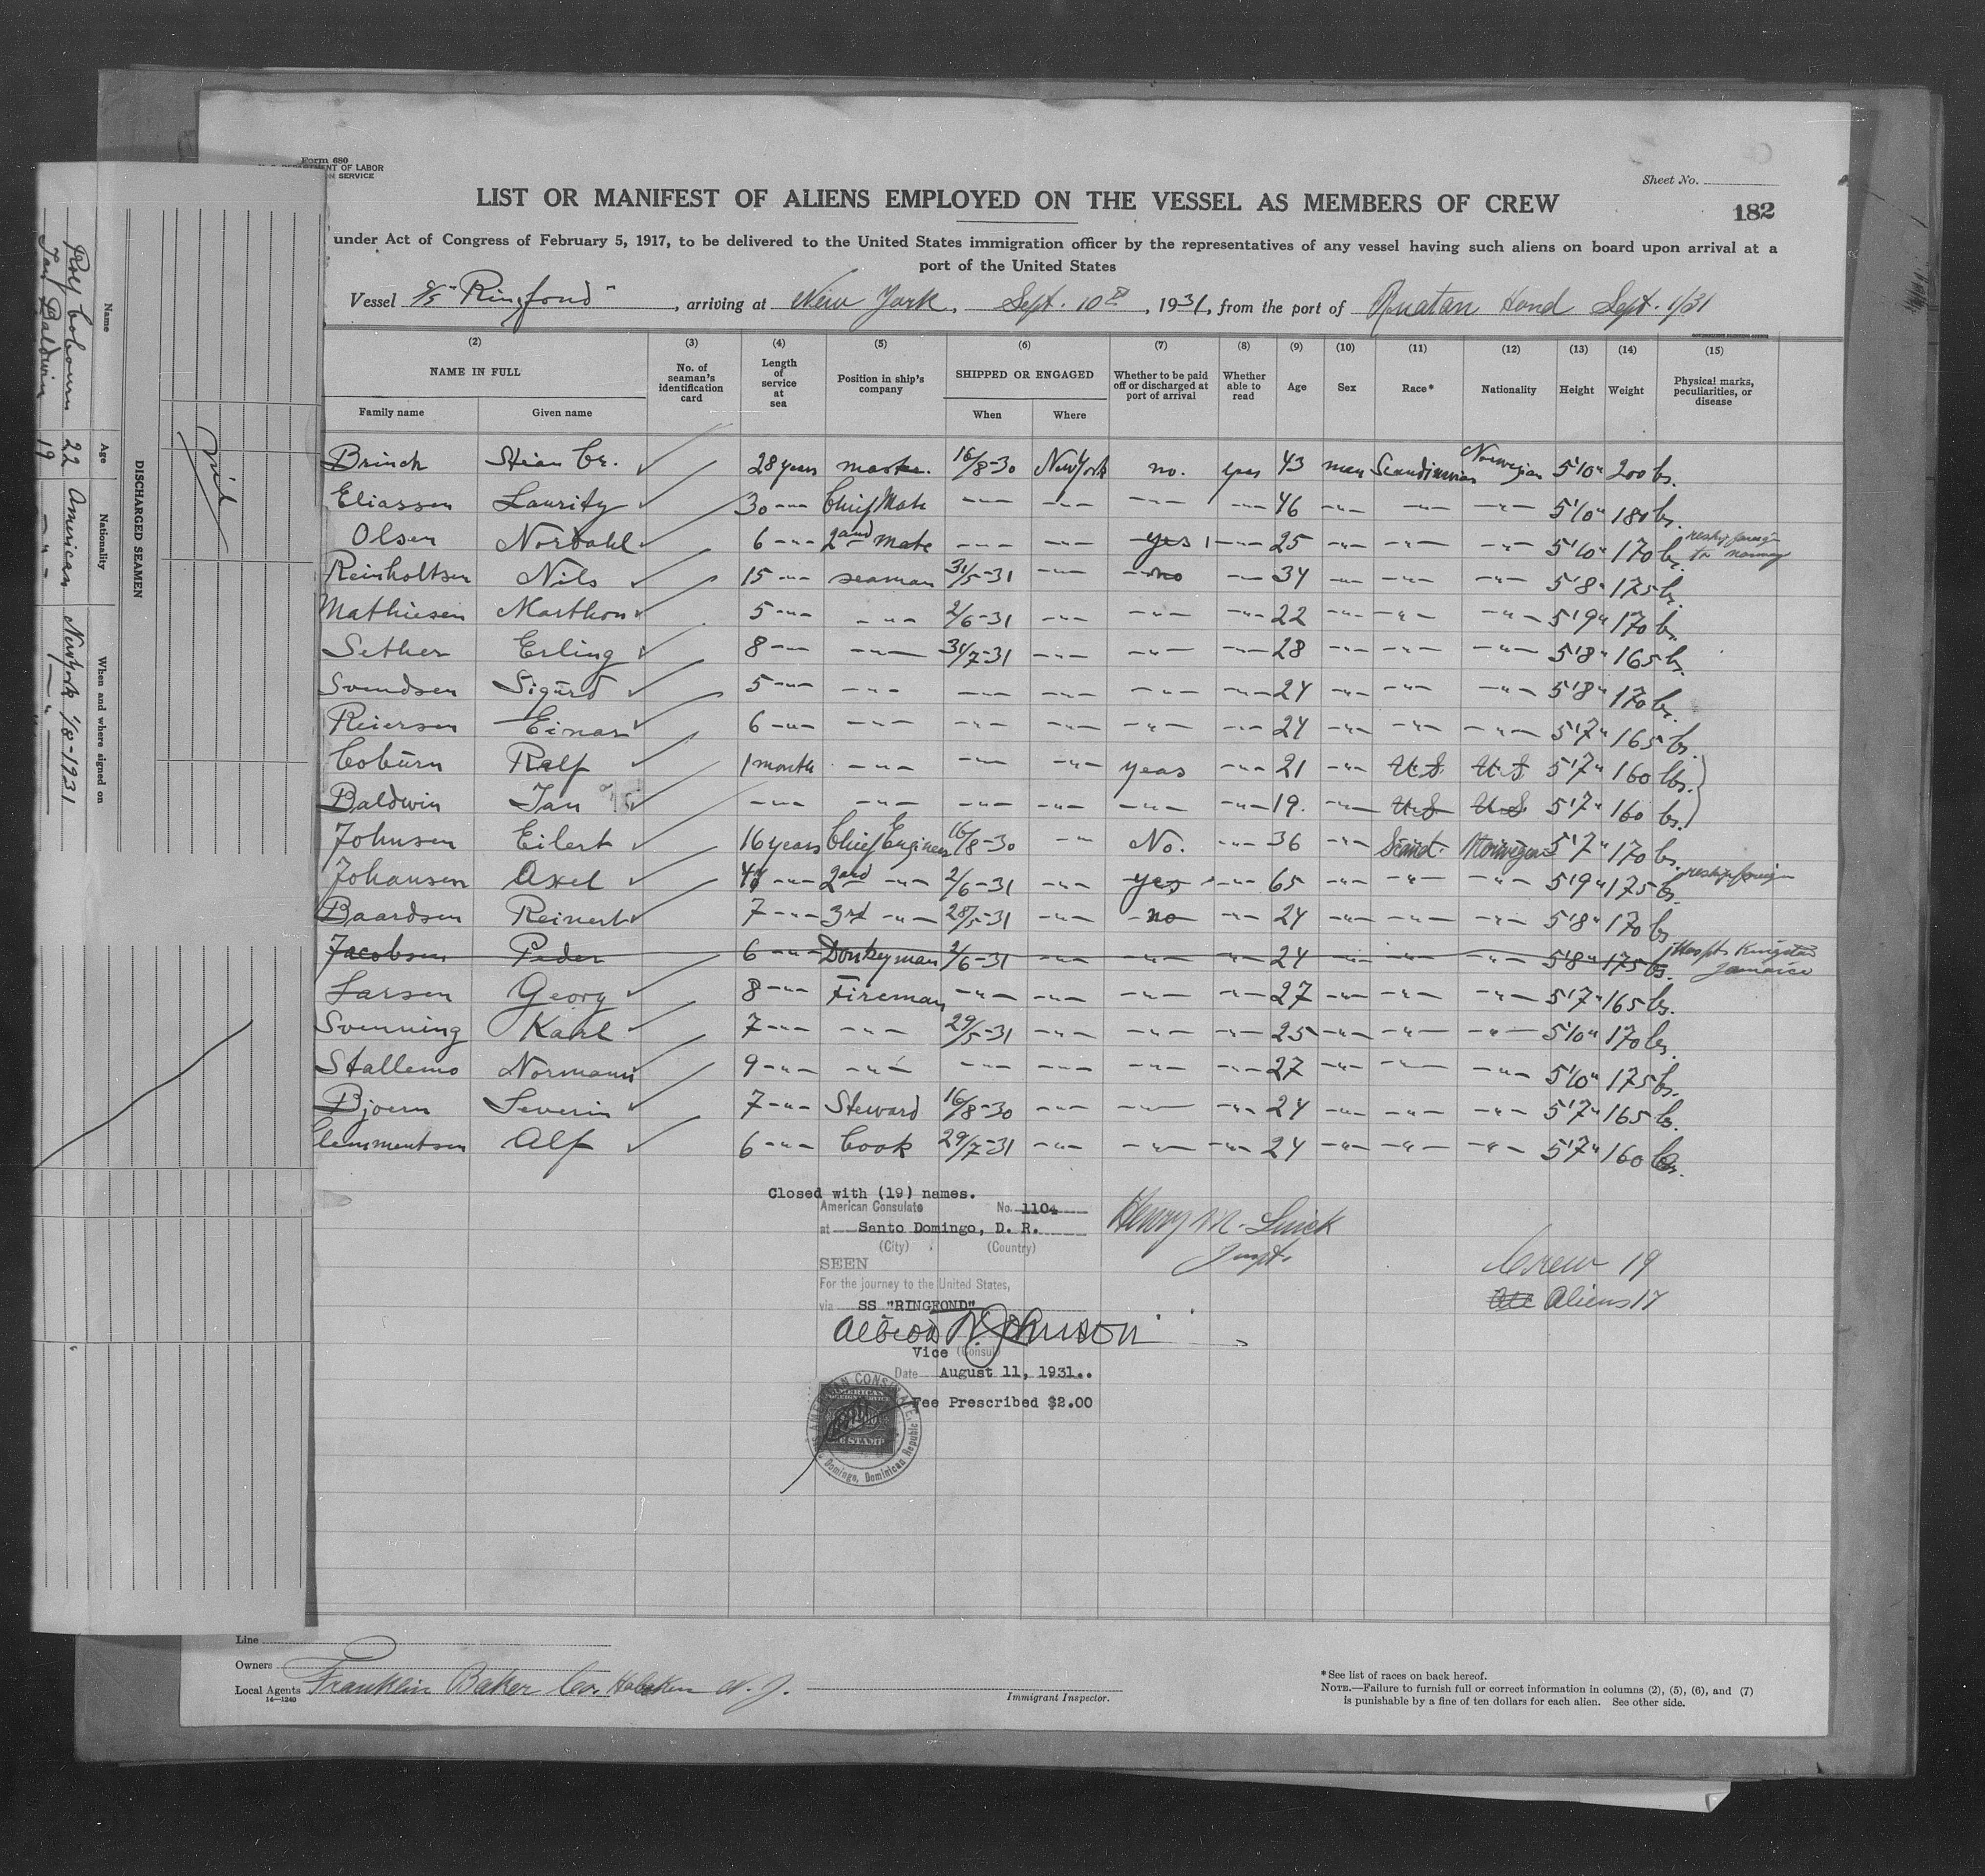 Form 680
DEPARTMENT OF LABOR
SERVICE
Sheet No.
LIST OR MANIFEST OF ALIENS EMPLOYED ON THE VESSEL AS MEMBERS OF CREW
182
under Act of Congress of February 5, 1917, to be delivered to the United States immigration officer by the representatives of any vessel having such aliens on board upon arrival at a
port of the United States
Vessel S/S "Ringfond", arriving at New York, Sept. 10th, 1931, from the port of Ruatan Hond Sept. 1/31
(2) (3) (4) (5) (6) (7) (8) (9) (10) (11) (12) (13) (14) (15)
NAME IN FULL
Family name Given name
No. of seaman's identification card
Length of service at sea
Position in ship's company
SHIPPED OR ENGAGED
When Where
Whether to be paid off or discharged at port of arrival
Whether able to read
Age Sex Race* Nationality Height Weight
Physical marks, peculiarities, or disease
Brinch Stian Chr. ✓ 28 years master. 16/8-30 New York no. yes 43 man Scandinavian Norwegian 5'10" 200 lbs.
Eliassen Lauritz ✓ 30 -"- Chief Mate -"- -"- -"- -"- 46 -"- -"- -"- 5'10" 180 lbs.
Olsen Nordahl ✓ 6 -"- 2nd mate -"- -"- yes -"- 25 -"- -"- -"- 5'10" 170 lbs. reship foreign to norway
Reinholtsen Nils ✓ 15 -"- seaman 31/5-31 -"- no -"- 34 -"- -"- -"- 5'8" 175 lbs.
Mathiesen Marthon ✓ 5 -"- -"- 2/6-31 -"- -"- -"- 22 -"- -"- -"- 5'9" 170 lbs.
Sether Erling ✓ 8 -"- -"- 31/7-31 -"- -"- -"- 28 -"- -"- -"- 5'8" 165 lbs.
Svendsen Sigurd ✓ 5 -"- -"- -"- -"- -"- -"- 24 -"- -"- -"- 5'8" 170 lbs.
Reiersen Einar ✓ 6 -"- -"- -"- -"- -"- -"- 24 -"- -"- -"- 5'7" 165 lbs.
Coburn Ralf ✓ 1 month -"- -"- -"- yeas -"- 21 -"- U.S. U.S 5'7" 160 lbs.
Baldwin Ian ✓ -"- -"- -"- -"- -"- -"- 19. -"- U.S U.S. 5'7" 160 lbs.
Johnsen Eilert ✓ 16 years Chief Engineer 16/8-30 -"- No. -"- 36 -"- Scand. Norwegian 5'7" 170 lbs.
Johansen Axel ✓ -"- 2nd -"- 2/6-31 -"- yes -"- 65 -"- -"- -"- 5'9" 175 lbs. reship foreign
Baardsen Reinert ✓ 7 -"- 3rd -"- 28/5-31 -"- no -"- 24 -"- -"- -"- 5'8" 170 lbs
Jacobsen Peder 6 -"- Donkeyman 2/6-31 -"- -"- -"- 24 -"- -"- -"- 5'8" 175 lbs. Hospt. Kingston Jamaica
Larsen Georg ✓ 8 -"- Fireman -"- -"- -"- -"- 27 -"- -"- -"- 5'7" 165 lbs.
Svenning Karl ✓ 7 -"- -"- 29/5-31 -"- -"- -"- 25 -"- -"- -"- 5'10" 170 lbs.
Stallemo Normann ✓ 9 -"- -"- -"- -"- -"- -"- 27 -"- -"- -"- 5'10" 175 lbs.
Bjoern Severin ✓ 7 -"- Steward 16/8-30 -"- -"- -"- 24 -"- -"- -"- 5'7" 165 lbs.
Clemmentsen Alf ✓ 6 -"- Cook 29/7-31 -"- -"- -"- 24 -"- -"- -"- 5'7" 160 lbs.
Closed with (19) names.
American Consulate No. 1104
at Santo Domingo, D. R.
(City) (Country)
SEEN
For the journey to the United States,
via SS "RINGFOND"
Albion W. Johnson
Vice (Consul)
Date August 11, 1931..
Fee Prescribed $2.00
AMERICAN CONSULATE
AMERICAN FOREIGN SERVICE
FEE STAMP
Domingo, Dominican Republic
Henry M.
Inspt.
Crew 19
Aliens 17
Line
Owners
Local Agents Franklin Baker Co. Hoboken N. J.
14—1240
Immigrant Inspector.
*See list of races on back hereof.
NOTE.—Failure to furnish full or correct information in columns (2), (5), (6), and (7)
is punishable by a fine of ten dollars for each alien. See other side.
DISCHARGED SEAMEN
Name Age Nationality When and where signed on
Rolf Cobourn 22 American New York 1/8-1931
Ian Baldwin 19 -"- -"-
nil